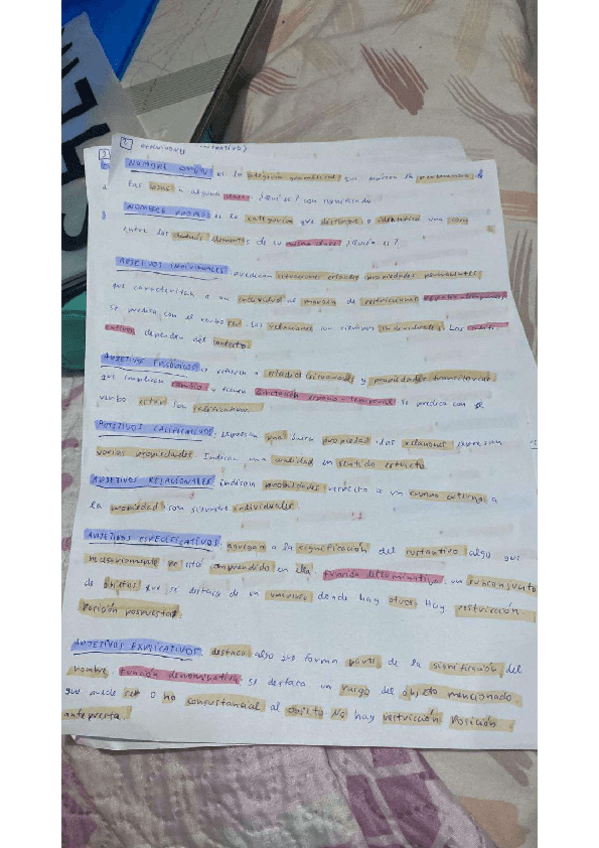 2
NOMBRE COMÚN es la categoría gramatical que marca la pertenencia de
las cosas a alguna clase. ¿Qué es? con significado
NOMBRE PROPIO es la categoría que distingue o identifica una cosa
entre los demás elementos de su misma clase ¿Quién es?
ADJETIVOS INDIVIDUALES predican situaciones estables propiedades permanentes
que caracterizan a un individuo al margen de restricciones espacio-temporales
se predica con el verbo ser. Los relacionales son siempre individuales. Los
dependen del contexto.
ADJETIVOS EPISÓDICOS se refieren a estadios (situaciones) y propiedades transitorias
que implican cambio y tienen limitación espacio-temporal se predica con el
verbo estar. Son calificativos.
ADJETIVOS CALIFICATIVOS: expresan una única propiedad. Los relacionales expresan
varias propiedades. Indican una cualidad en sentido estricto.
ADJETIVOS RELACIONALES: indican propiedades respecto a un externo a
la propiedad son siempre individuales.
ADJETIVOS ESPECIFICATIVOS: agregan a la significación del sustantivo algo que
necesariamente no está comprendido en ella. Función determinativa. un subconjunto
de objetos que se destaca de un universo donde hay otros. Hay restricción.
Posición pospuesta.
ADJETIVOS EXPLICATIVOS: destaca algo que forma parte de la significación del
nombre. Función denominativa se destaca un rasgo del objeto mencionado
que puede ser o no consustancial al objeto No hay restricción Posición
antepuesta.